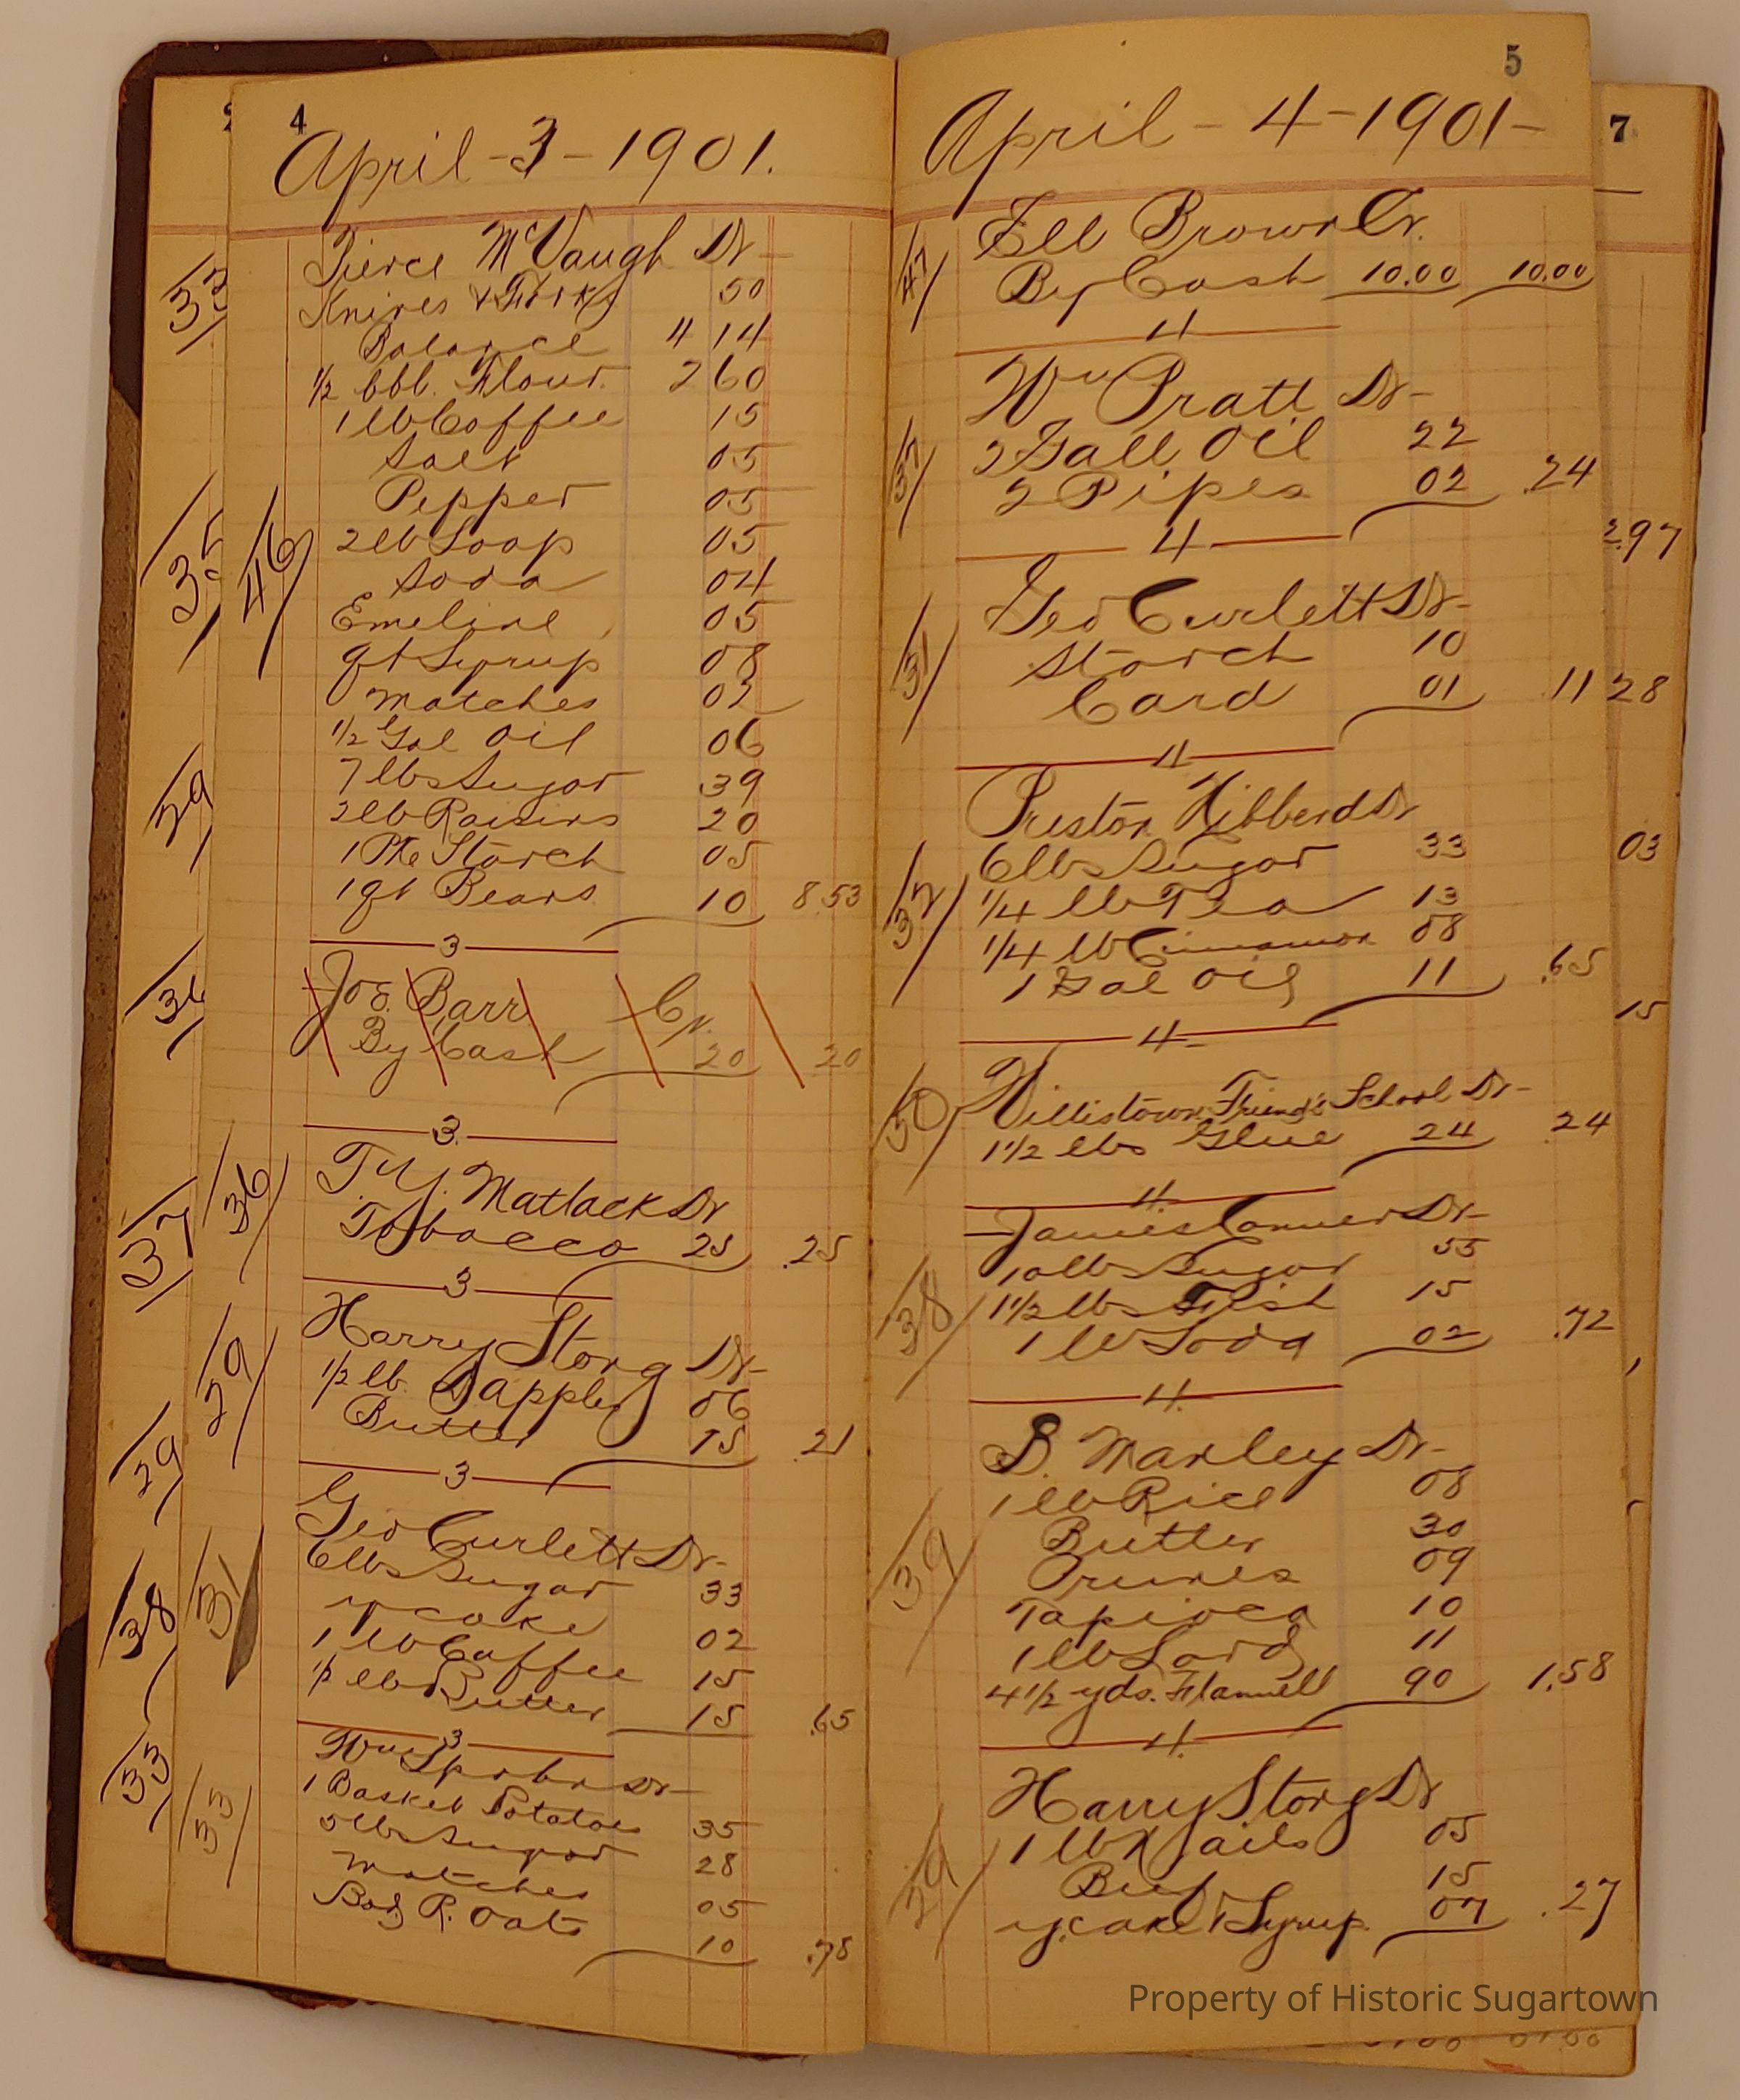 4
April - 3 - 1901.
Pierce McVaugh Dr
Knives & Forks 50
Balance 4 14
1/2 bbl. Flour. 2 60
1 lb Coffee 15
Salt 05
Pepper 05
2 lb Soap 05
Soda 04
Emeline 05
qt Syrup 08
Matches 02
1/2 Gal Oil 06
7 lbs Sugar 39
2 lb Raisins 20
1 Pke Starch 05
1 qt Beans 10 8.53
46
3
Joe Barr Cr.
By Cash 20 20
3
36
T. J. Matlack Dr
Tobacco 25 .25
3
29
Harry Storg Dr
1/2 lb. Dapples 06
Butter 15 .21
3
31
Geo Curlett Dr
6 lbs Sugar 33
y cake 02
1 lb Coffee 15
1/2 lb Butter 15 .65
3
33
Wm Dr
1 Basket Potatoes 35
5 lbs Sugar 28
Matches 05
Box R. Oats 10 .78
33
35
29
36
37
29
38
33
5
April - 4 - 1901 -
47
Ell Brown Cr.
By Cash 10.00 10.00
4
37
Wm Pratt Dr
2 Gall Oil 22
2 Pipes 02 .24
4
31
Geo Curlett Dr
Starch 10
Card 01 .11
4
32
Preston Hibberd Dr
6 lbs Sugar 33
1/4 lb Tea 13
1/4 lb Cinnamon 08
1 Gal Oil 11 .65
4
50
Willistown Friend's School Dr
1 1/2 lbs Glue 24 .24
4
38
James Conner Dr
10 lbs Sugar 55
1 1/2 lbs Fish 15
1 lb Soda 02 .72
4
39
B. Marley Dr
1 lb Rice 08
Butter 30
Prunes 09
Tapioca 10
1 lb Lard 11
4 1/2 yds. Flannell 90 1.58
4
29
Harry Storg Dr
1 lb Nails 05
Beef 15
y. cake & Syrup. 07 .27
7
2.97
28
03
15
Property of Historic Sugartown